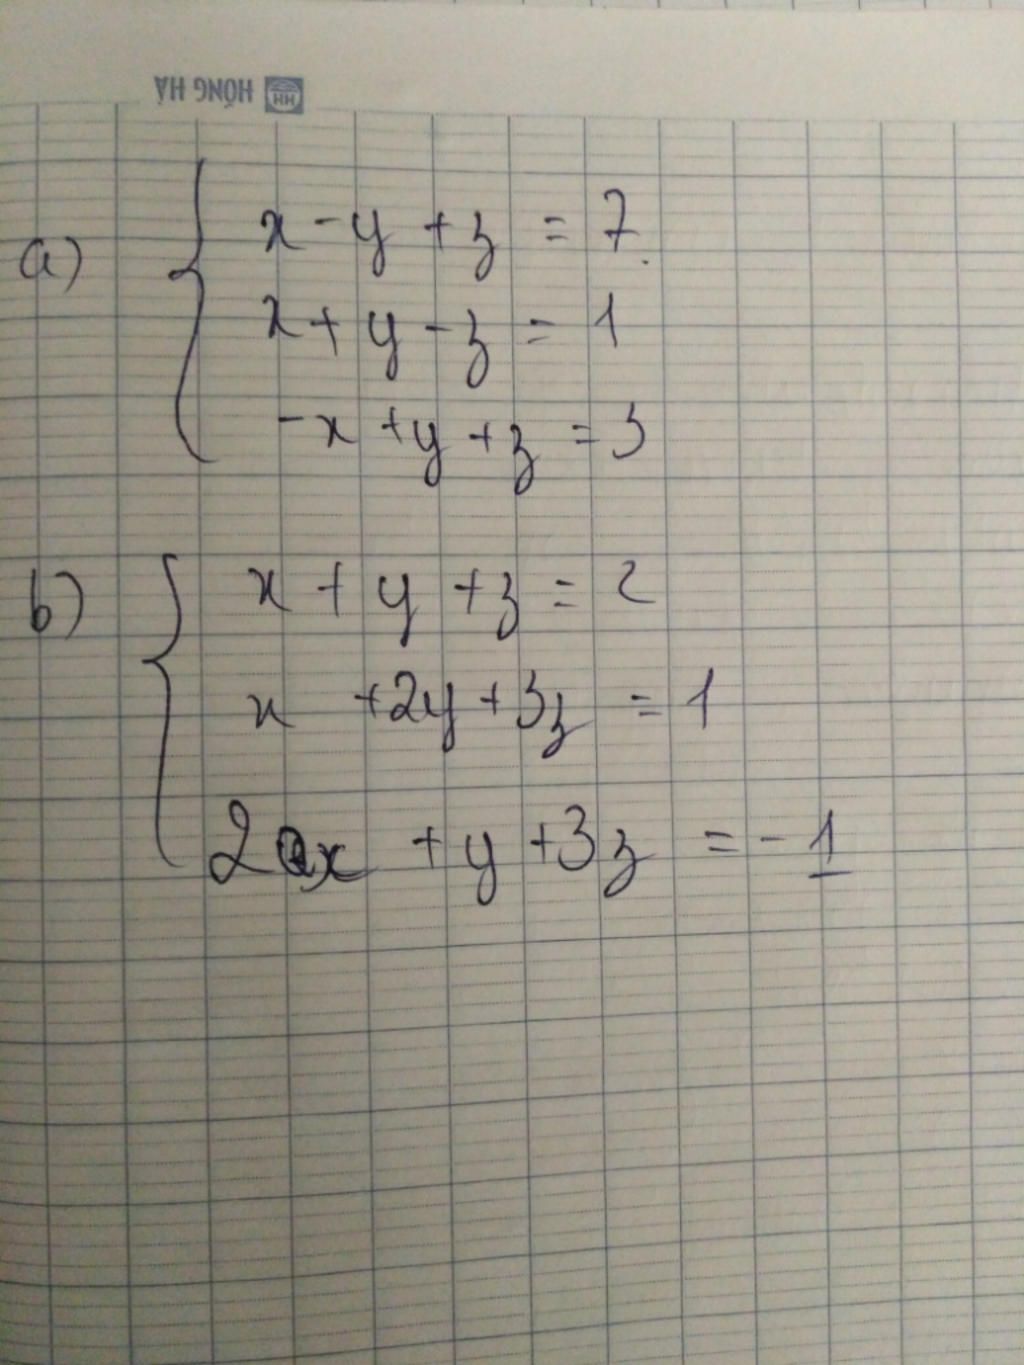 HỒNG HÀ HH
a) x - y + z = 7
x + y - z = 1
-x + y + z = 3
b) x + y + z = 2
x + 2y + 3z = 1
2x + y + 3z = -1